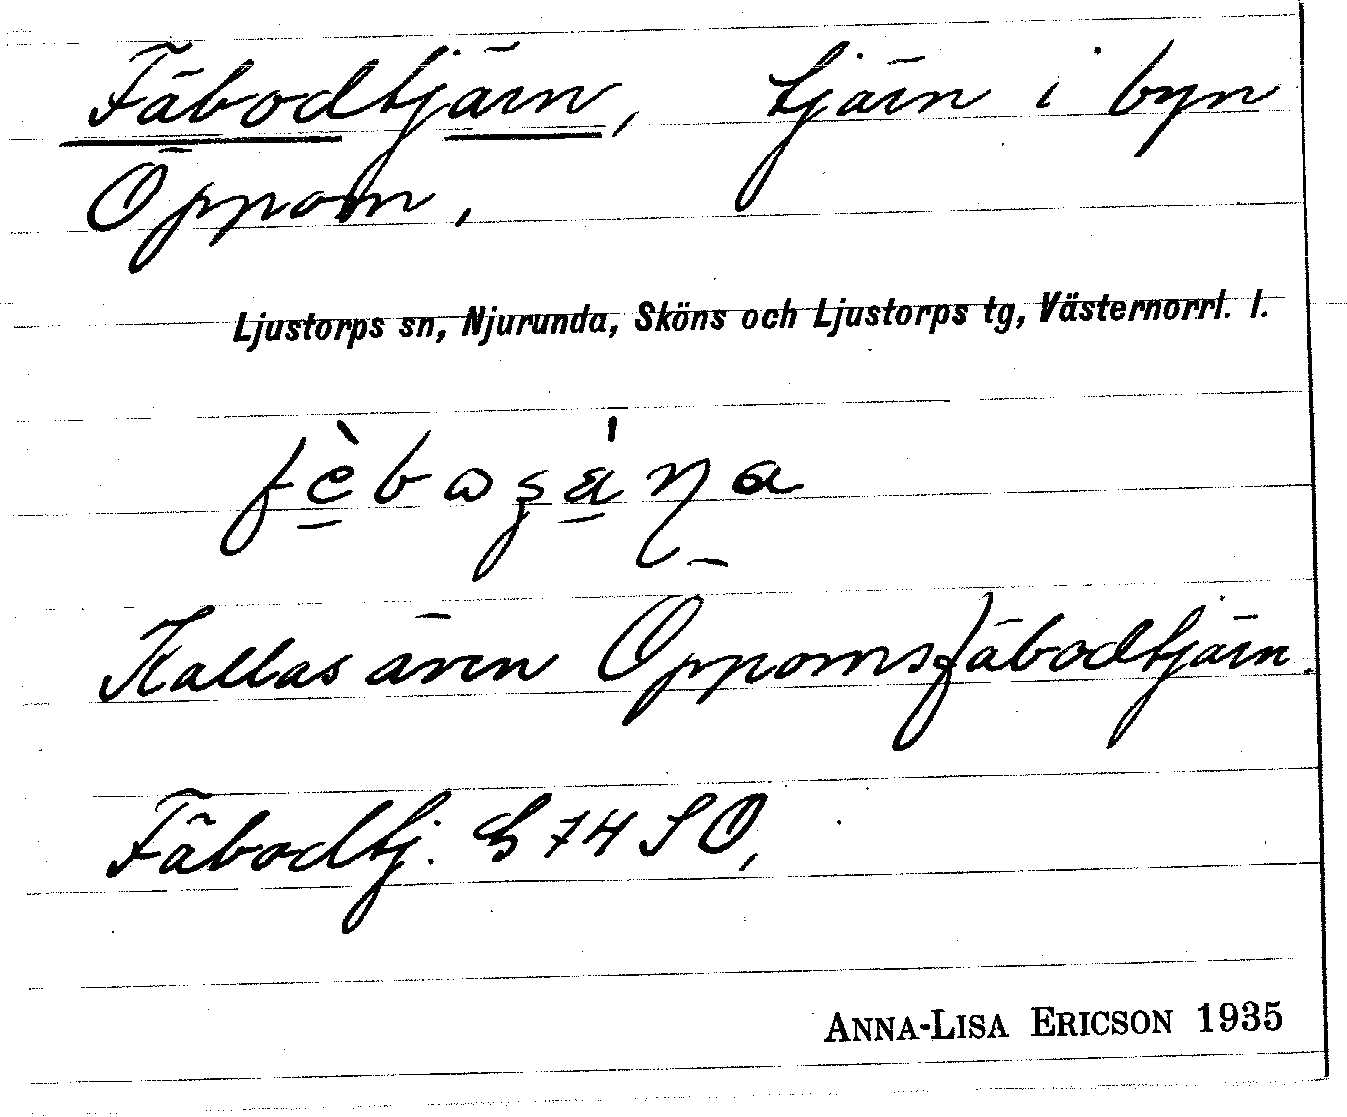 Fäbodtjärn, tjärn i byn
Öppom,
Ljustorps sn, Njurunda, Sköns och Ljustorps tg, Västernorrl. l.
Kallas även Öppomsfäbodtjärn.
Fäbodtj. G 74 SO,
ANNA-LISA ERICSON 1935